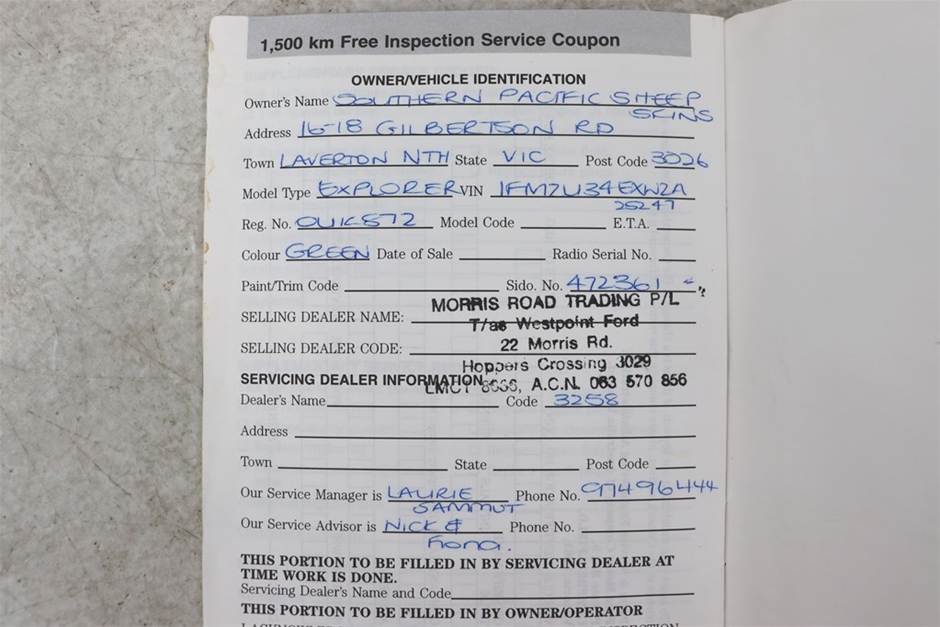 1,500 km Free Inspection Service Coupon
OWNER/VEHICLE IDENTIFICATION
Owner's Name SOUTHERN PACIFIC SHEEP
SKINS
Address 16-18 GILBERTSON RD
Town LAVERTON NTH State VIC Post Code 3026
Model Type EXPLORER VIN 1FMZU34EXWZA
25247
Reg. No. OUK572 Model Code E.T.A.
Colour GREEN Date of Sale Radio Serial No.
Paint/Trim Code Sido. No. 472361
MORRIS ROAD TRADING P/L
SELLING DEALER NAME:
T/as Westpoint Ford
22 Morris Rd.
SELLING DEALER CODE:
Hoppers Crossing 3029
SERVICING DEALER INFORMATION
LMCT A.C.N. 063 570 856
Dealer's Name Code 3258
Address
Town State Post Code
Our Service Manager is LAURIE Phone No. 97496444
SAMMUT
Our Service Advisor is NICK & Phone No.
Fiona.
THIS PORTION TO BE FILLED IN BY SERVICING DEALER AT
TIME WORK IS DONE.
Servicing Dealer's Name and Code
THIS PORTION TO BE FILLED IN BY OWNER/OPERATOR